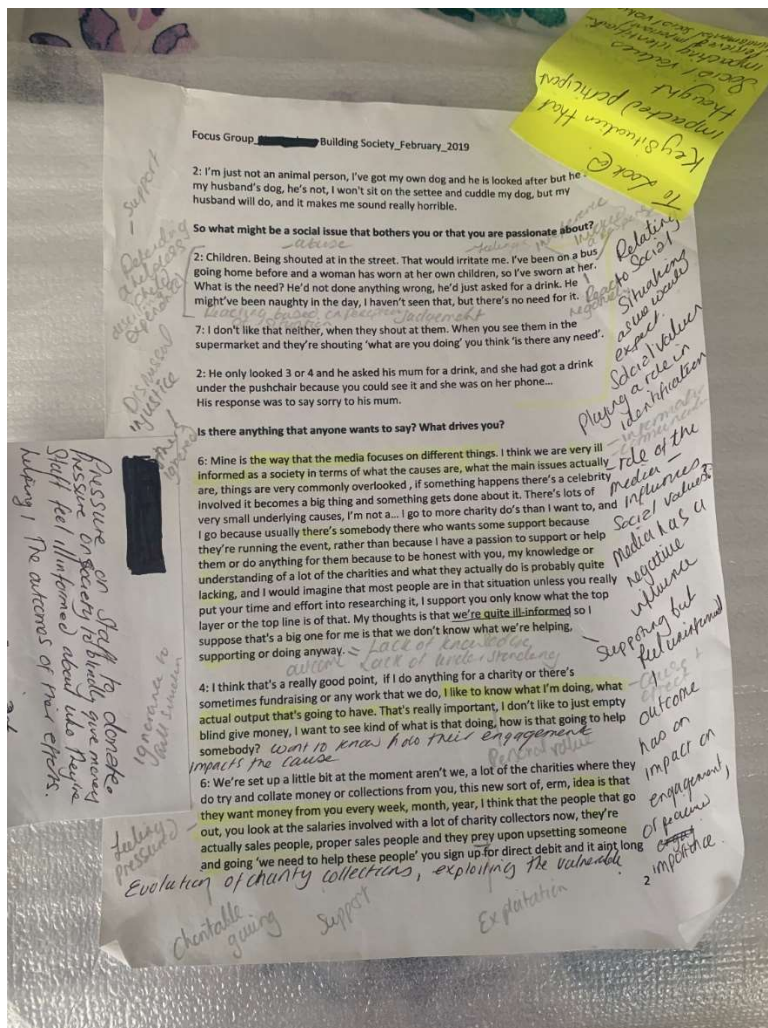 To Look @
Key Situation that
impacted participent
thought
Social values
impacting identifying
Focus Group_ Building Society_February_2019
2: I'm just not an animal person, I've got my own dog and he is looked after but he
my husband's dog, he's not, I won't sit on the settee and cuddle my dog, but my
husband will do, and it makes me sound really horrible.
So what might be a social issue that bothers you or that you are passionate about?
abuse
2: Children. Being shouted at in the street. That would irritate me. I've been on a bus
going home before and a woman has worn at her own children, so I've sworn at her.
What is the need? He'd not done anything wrong, he'd just asked for a drink. He
might've been naughty in the day, I haven't seen that, but there's no need for it.
Judgement
7: I don't like that neither, when they shout at them. When you see them in the
supermarket and they're shouting 'what are you doing' you think 'is there any need'.
2: He only looked 3 or 4 and he asked his mum for a drink, and she had got a drink
under the pushchair because you could see it and she was on her phone...
His response was to say sorry to his mum.
Is there anything that anyone wants to say? What drives you?
6: Mine is the way that the media focuses on different things. I think we are very ill
informed as a society in terms of what the causes are, what the main issues actually
are, things are very commonly overlooked , if something happens there's a celebrity
involved it becomes a big thing and something gets done about it. There's lots of
very small underlying causes, I'm not a... I go to more charity do's than I want to, and
I go because usually there's somebody there who wants some support because
they're running the event, rather than because I have a passion to support or help
them or do anything for them because to be honest with you, my knowledge or
understanding of a lot of the charities and what they actually do is probably quite
lacking, and I would imagine that most people are in that situation unless you really
put your time and effort into researching it, I support you only know what the top
layer or the top line is of that. My thoughts is that we're quite ill-informed so I
suppose that's a big one for me is that we don't know what we're helping,
supporting or doing anyway.
= Lack of knowledge,
outcome Lack of understanding
4: I think that's a really good point, if I do anything for a charity or there's
sometimes fundraising or any work that we do, I like to know what I'm doing, what
actual output that's going to have. That's really important, I don't like to just empty
blind give money, I want to see kind of what is that doing, how is that going to help
somebody? Want to know how their engagement
impacts the cause
Personal value
6: We're set up a little bit at the moment aren't we, a lot of the charities where they
do try and collate money or collections from you, this new sort of, erm, idea is that
they want money from you every week, month, year, I think that the people that go
out, you look at the salaries involved with a lot of charity collectors now, they're
actually sales people, proper sales people and they prey upon upsetting someone
and going 'we need to help these people' you sign up for direct debit and it aint long
Evolution of charity collections, exploiting the vulnerable
2
Charitable
giving
Support
Exploitation
Relating
to Social
Situations
as would
expect.
Social values
playing a role in
identification
role of the
media –
Influences
Social values?
media has a
negative
influence
Supporting but
feel uninformed
Cause +
effect
outcome
has on
impact on
engagement,
or perceived
importance.
- Support
Defending
a helpless
child
Discussed
injustice
Ignorance to
Feeling
pressured
Pressure on Staff to donate.
Pressure on Society to blindly give money
Staff feel illinformed about who they're
helping / The outcomes of their efforts.